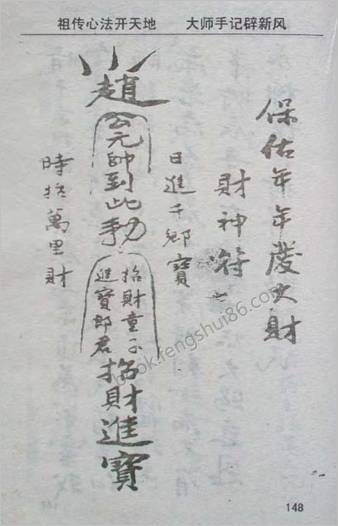 祖传心法开天地 大师手记辟新风
保佑年年發大財
財神符
日進千鄉寶
趙公元帥到此
招財童子
進寶郎君
招財進寶
時招萬里財
book.fengshui86.com
148